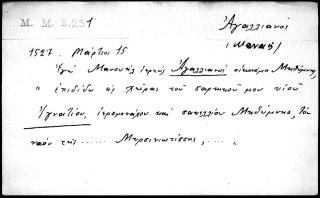 Μ. Μ. 5, 231
Ἀγαλλιανός
(Μανουήλ)
1527. Μάρτιος 15
Ἐγὼ Μανουὴλ ἱερεὺς Ἀγαλλιανὸς οἰκονόμος Μηθύμνης,
" ἐπιδίδω εἰς χεῖρας τοῦ σαρκικοῦ μου υἱοῦ
Ἰγνατίου, ἱερομονάχου καὶ σακελλίου Μηθύμνης, τὸν
ναὸν τῆς ...... Μυρσινιωτίσσης, .... "